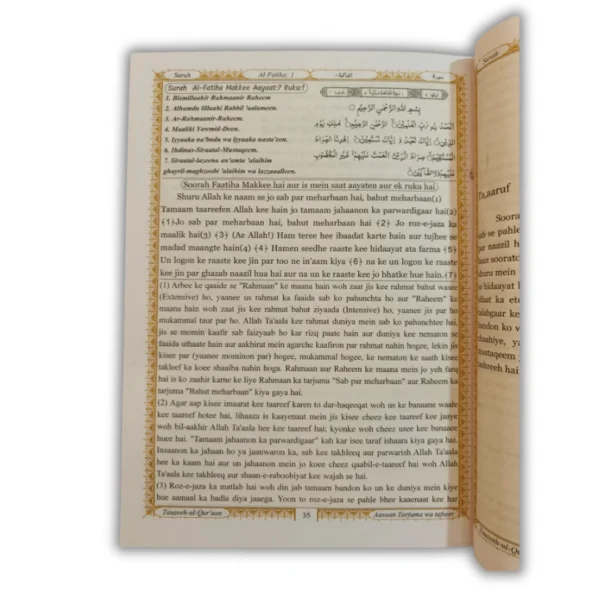 Surah Al-Fatiha: 1 الفاتحة سورة
Surah Al-Fatiha Makkee Aayaat:7 Ruku:1
1. Bismillaahir Rahmaanir Raheem
2. Alhamdu lillaahi Rabbil 'aalemeen.
3. Ar-Rahmaanir-Raheem.
4. Maaliki Yawmid-Deen.
5. Iyyaaka na'budu wa Iyyaaka nasta'een.
6. Ihdinas-Siraatal-Mustaqeem.
7. Siraatal-lazeena an'amta 'alaihim
ghayril-maghzoobi 'alaihim wa lazzaalleen.
بِسْمِ اللّٰهِ الرَّحْمٰنِ الرَّحِيْمِ
Soorah Faatiha Makkee hai aur is mein saat aayaten aur ek ruku hai
Shuru Allah ke naam se jo sab par meharbaan hai, bahut meharbaan(1)
Tamaam taareefen Allah kee hain jo tamaam jahaanon ka parwardigaar hai(2)
﴾1﴿Jo sab par meharbaan hai, bahut meharbaan hai ﴾2﴿ Jo roz-e-jaza ka
maalik hai(3) ﴾3﴿ (Ae Allah!) Ham teree hee ibaadat karte hain aur tujhee se
madad maangte hain(4) ﴾4﴿ Hamen seedhe raaste kee hidaayat ata farma ﴾5﴿
Un logon ke raaste kee jin par too ne in'aam kiya ﴾6﴿ na ke un logon ke raaste
kee jin par ghazab naazil hua hai aur na un ke raaste kee jo bhatke hue hain.﴾7﴿
(1) Arbee ke qaaide se "Rahmaan" ke maana hain woh zaat jis kee rahmat bahut wasee
(Extensive) ho, yaanee us rahmat ka faaida sab ko pahunchta ho aur "Raheem" ke
maana hain woh zaat jis kee rahmat bahut ziyaada (Intensive) ho, yaanee jis par ho
mukammal taur par ho. Allah Ta'aala kee rahmat duniya mein sab ko pahunchtee hai,
jis se momin kaafir sab faizyaab ho kar rizq paate hain aur duniya kee nematon se
faaida uthaate hain aur aakhirat mein agarche kaafiron par rahmat nahin hogee, lekin jis
kisee par (yaanee mominon par) hogee, mukammal hogee, ke nematon ke saath kisee
takleef ka koee shaaiba nahin hoga. Rahmaan aur Raheem ke maana mein jo yeh farq
hai is ko zaahir karne ke liye Rahmaan ka tarjuma "Sab par meharbaan" aur Raheem ka
tarjuma "Bahut meharbaan" kiya gaya hai.
(2) Agar aap kisee imaarat kee taareef karen to dar-haqeeqat woh us ke banaane waale
kee taareef hotee hai, lihaaza is kaayenaat mein jis kisee cheez kee taareef kee jaaye
woh bil-aakhir Allah Ta'aala hee kee taareef hai; kyonke woh cheez usee kee banaaee
huee hai. "Tamaam jahaanon ka parwardigaar" kah kar isee taraf ishaara kiya gaya hai.
Insaanon ka jahaan ho ya jaanwaron ka, sab kee takhleeq aur parwarish Allah Ta'aala
hee ka kaam hai aur un jahaanon mein jo koee cheez qaabil-e-taareef hai woh Allah
Ta'aala kee takhleeq aur shaan-e-raboobiyat kee wajah se hai.
(3) Roz-e-jaza ka matlab hai woh din jab tamaam bandon ko un ke duniya mein kiye
hue aamaal ka badla diya jaaega. Yoon to roz-e-jaza se pahle bhee kaaenaat kee har
Tauzeeh-ul-Qur'aan 35 Aasaan Tarjuma wa tafseer
Ta,aaruf
Soora
sab se pahle
par naazil h